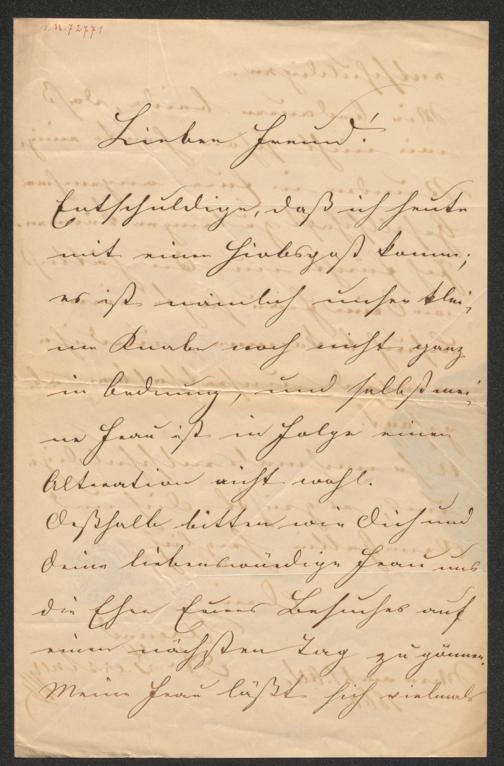 I.N. 72771
Lieber Freund!
Entschuldige, daß ich heute
mit einer Hiobspost komme;
es ist nämlich unser klei-
ner Knabe noch nicht ganz
in Ordnung, und selbst mei-
ne Frau ist in Folge einer
Alteration nicht wohl.
Deßhalb bitten wir Dich und
Deine liebenswürdige Frau uns
die Ehre Eures Besuches auf
einen nächsten Tag zu gönnen.
Meine Frau läßt sich vielmals